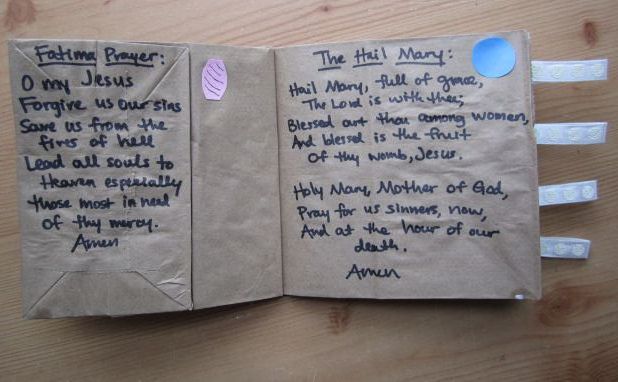 Fatima Prayer:
O my Jesus
Forgive us our sins
Save us from the
fires of hell
Lead all souls to
Heaven especially
those most in need
of thy mercy.
Amen
The Hail Mary:
Hail Mary, full of grace,
The Lord is with thee;
Blessed art thou among women,
And blessed is the fruit
Of thy womb, Jesus.
Holy Mary, Mother of God,
Pray for us sinners, now,
And at the hour of our
death.
Amen